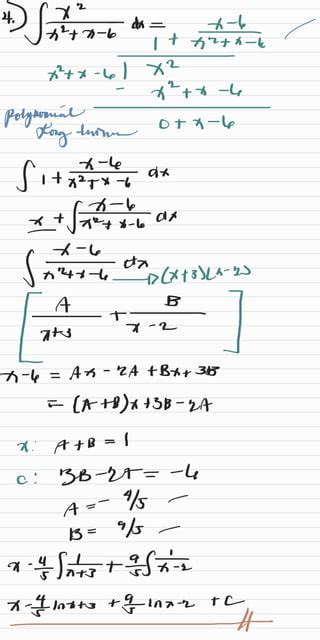 4.) ∫ x²/(x²+x-6) dx =
1 + (x-6)/(x²+x-6)
x²+x-6 | x²
- x²+x-6
polynomial
Long
0+x-6
∫ 1 + (x-6)/(x²+x-6) dx
x + ∫ (x-6)/(x²+x-6) dx
∫ (x-6)/(x²+x-6) dx → (x+3)(x-2)
[ A/(x+3) + B/(x-2) ]
x-6 = Ax - 2A + Bx + 3B
= (A+B)x + 3B - 2A
x: A+B = 1
c: 3B-2A = -6
A = - 4/5
B = 9/5
x - 4/5 ∫ 1/(x+3) + 9/5 ∫ 1/(x-2)
x - 4/5 ln x+3 + 9/5 ln x-2 + C